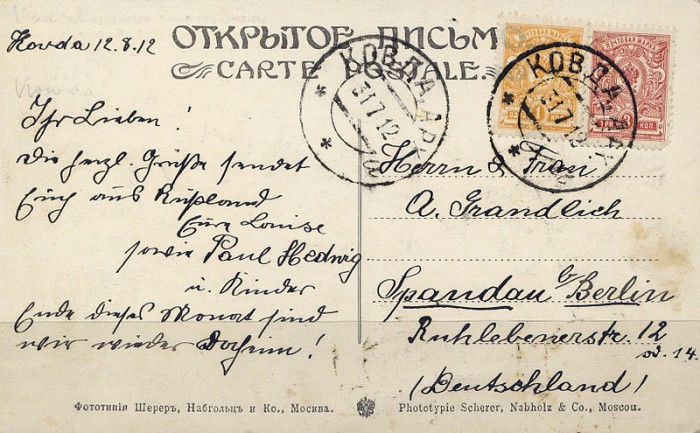 Kovda 12.8.12
ОТКРЫТОЕ ПИСЬМО
CARTE POSTALE.
КОВДА, АРХ.
31.7.12
КОВДА, АРХ.
31.7.12
Ihr Lieben!
Die herzl. Grüße sendet
Euch aus Rußland
Eure Louise
sowie Paul Hedwig
u. Kinder
Ende dieses Monat sind
wir wieder daheim!
Herrn & Frau
A. Grandlich
Spandau b/Berlin
Ruhlebenerstr. 12
od. 14.
(Deutschland)
Фототипія Шереръ, Набгольцъ и Ко., Москва.
Phototypie Scherer, Nabholz & Co., Moscou.